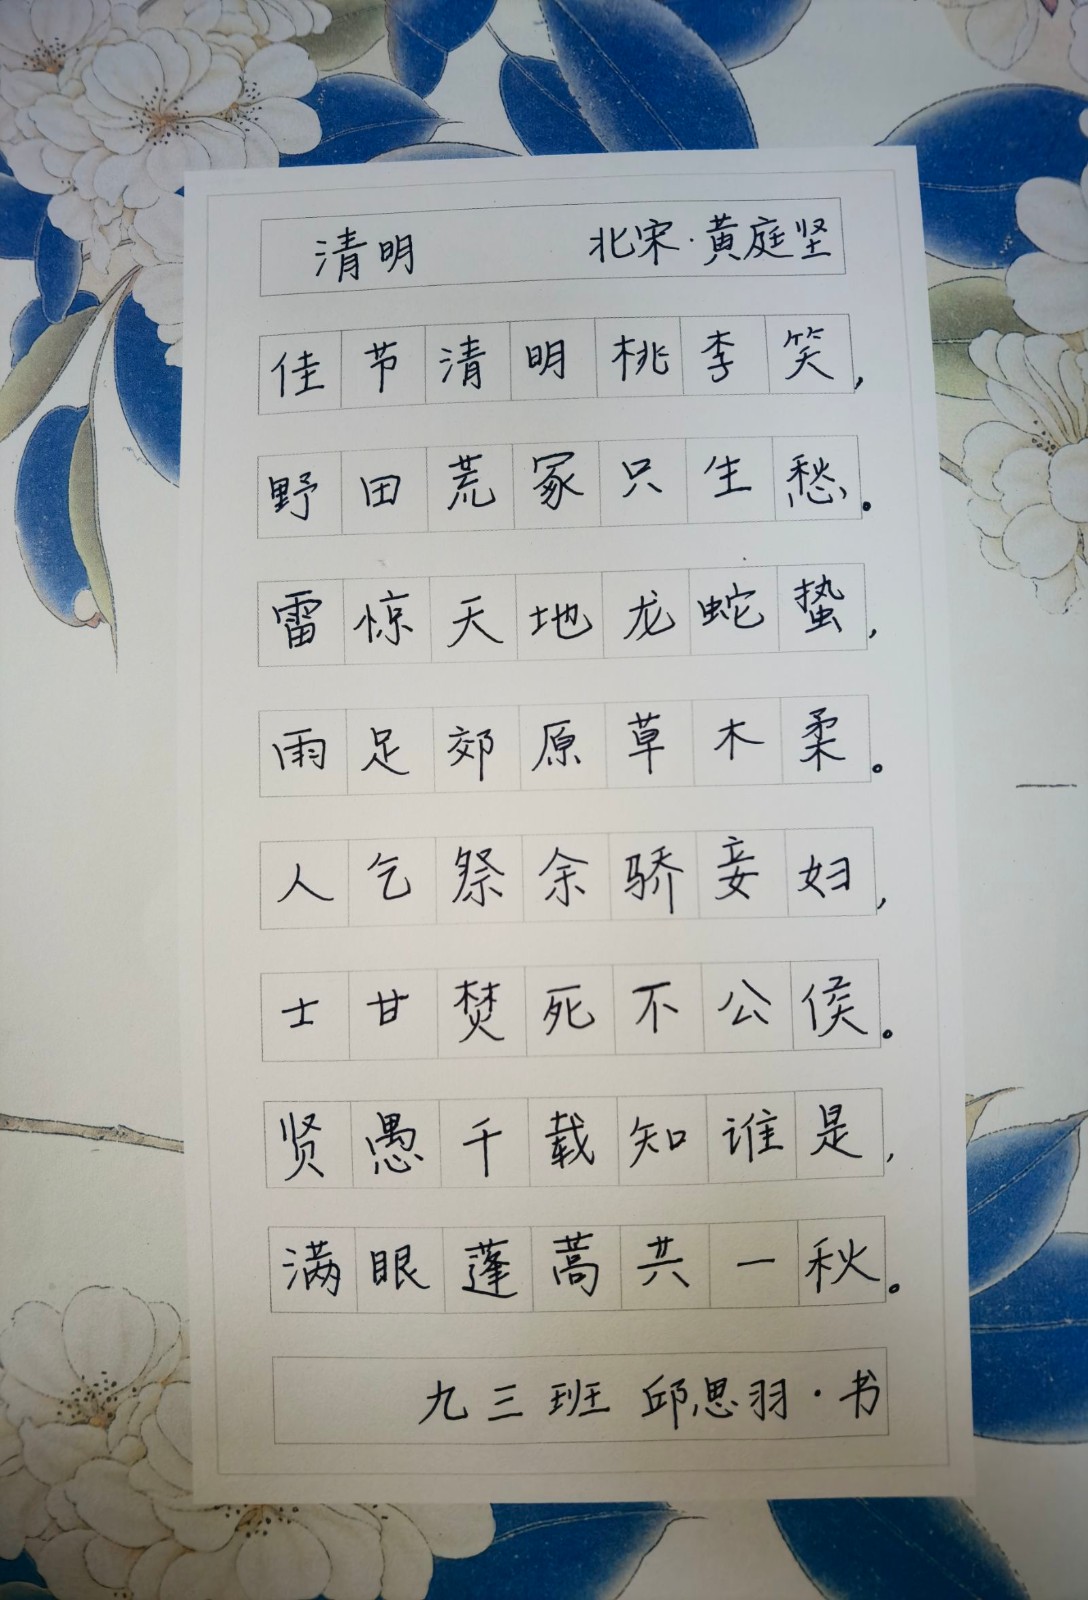 清明 北宋·黄庭坚
佳节清明桃李笑,
野田荒冢只生愁。
雷惊天地龙蛇蛰,
雨足郊原草木柔。
人乞祭余骄妾妇,
士甘焚死不公侯。
贤愚千载知谁是,
满眼蓬蒿共一秋。
九三班 邱思羽·书